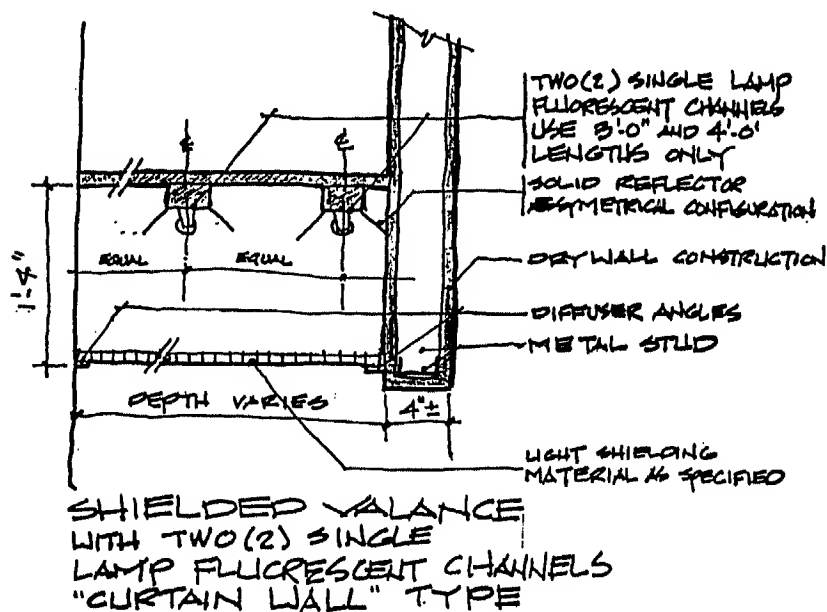 TWO(2) SINGLE LAMP
FLUORESCENT CHANNELS
USE 3'-0" AND 4'-0"
LENGTHS ONLY
SOLID REFLECTOR
ASYMETRICAL CONFIGURATION
DRYWALL CONSTRUCTION
DIFFUSER ANGLES
METAL STUD
LIGHT SHIELDING
MATERIAL AS SPECIFIED
℄ ℄
EQUAL EQUAL
1'-4"
DEPTH VARIES 4"±
SHIELDED VALANCE
WITH TWO(2) SINGLE
LAMP FLUORESCENT CHANNELS
"CURTAIN WALL" TYPE